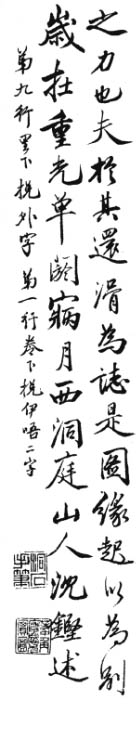 之力也夫於其還滑為誌是圖緣起以為別
歲在重光單閼寎月西洞庭山人沈鏗述
第九行異下挩外字 第一行卷下挩伊唔二字